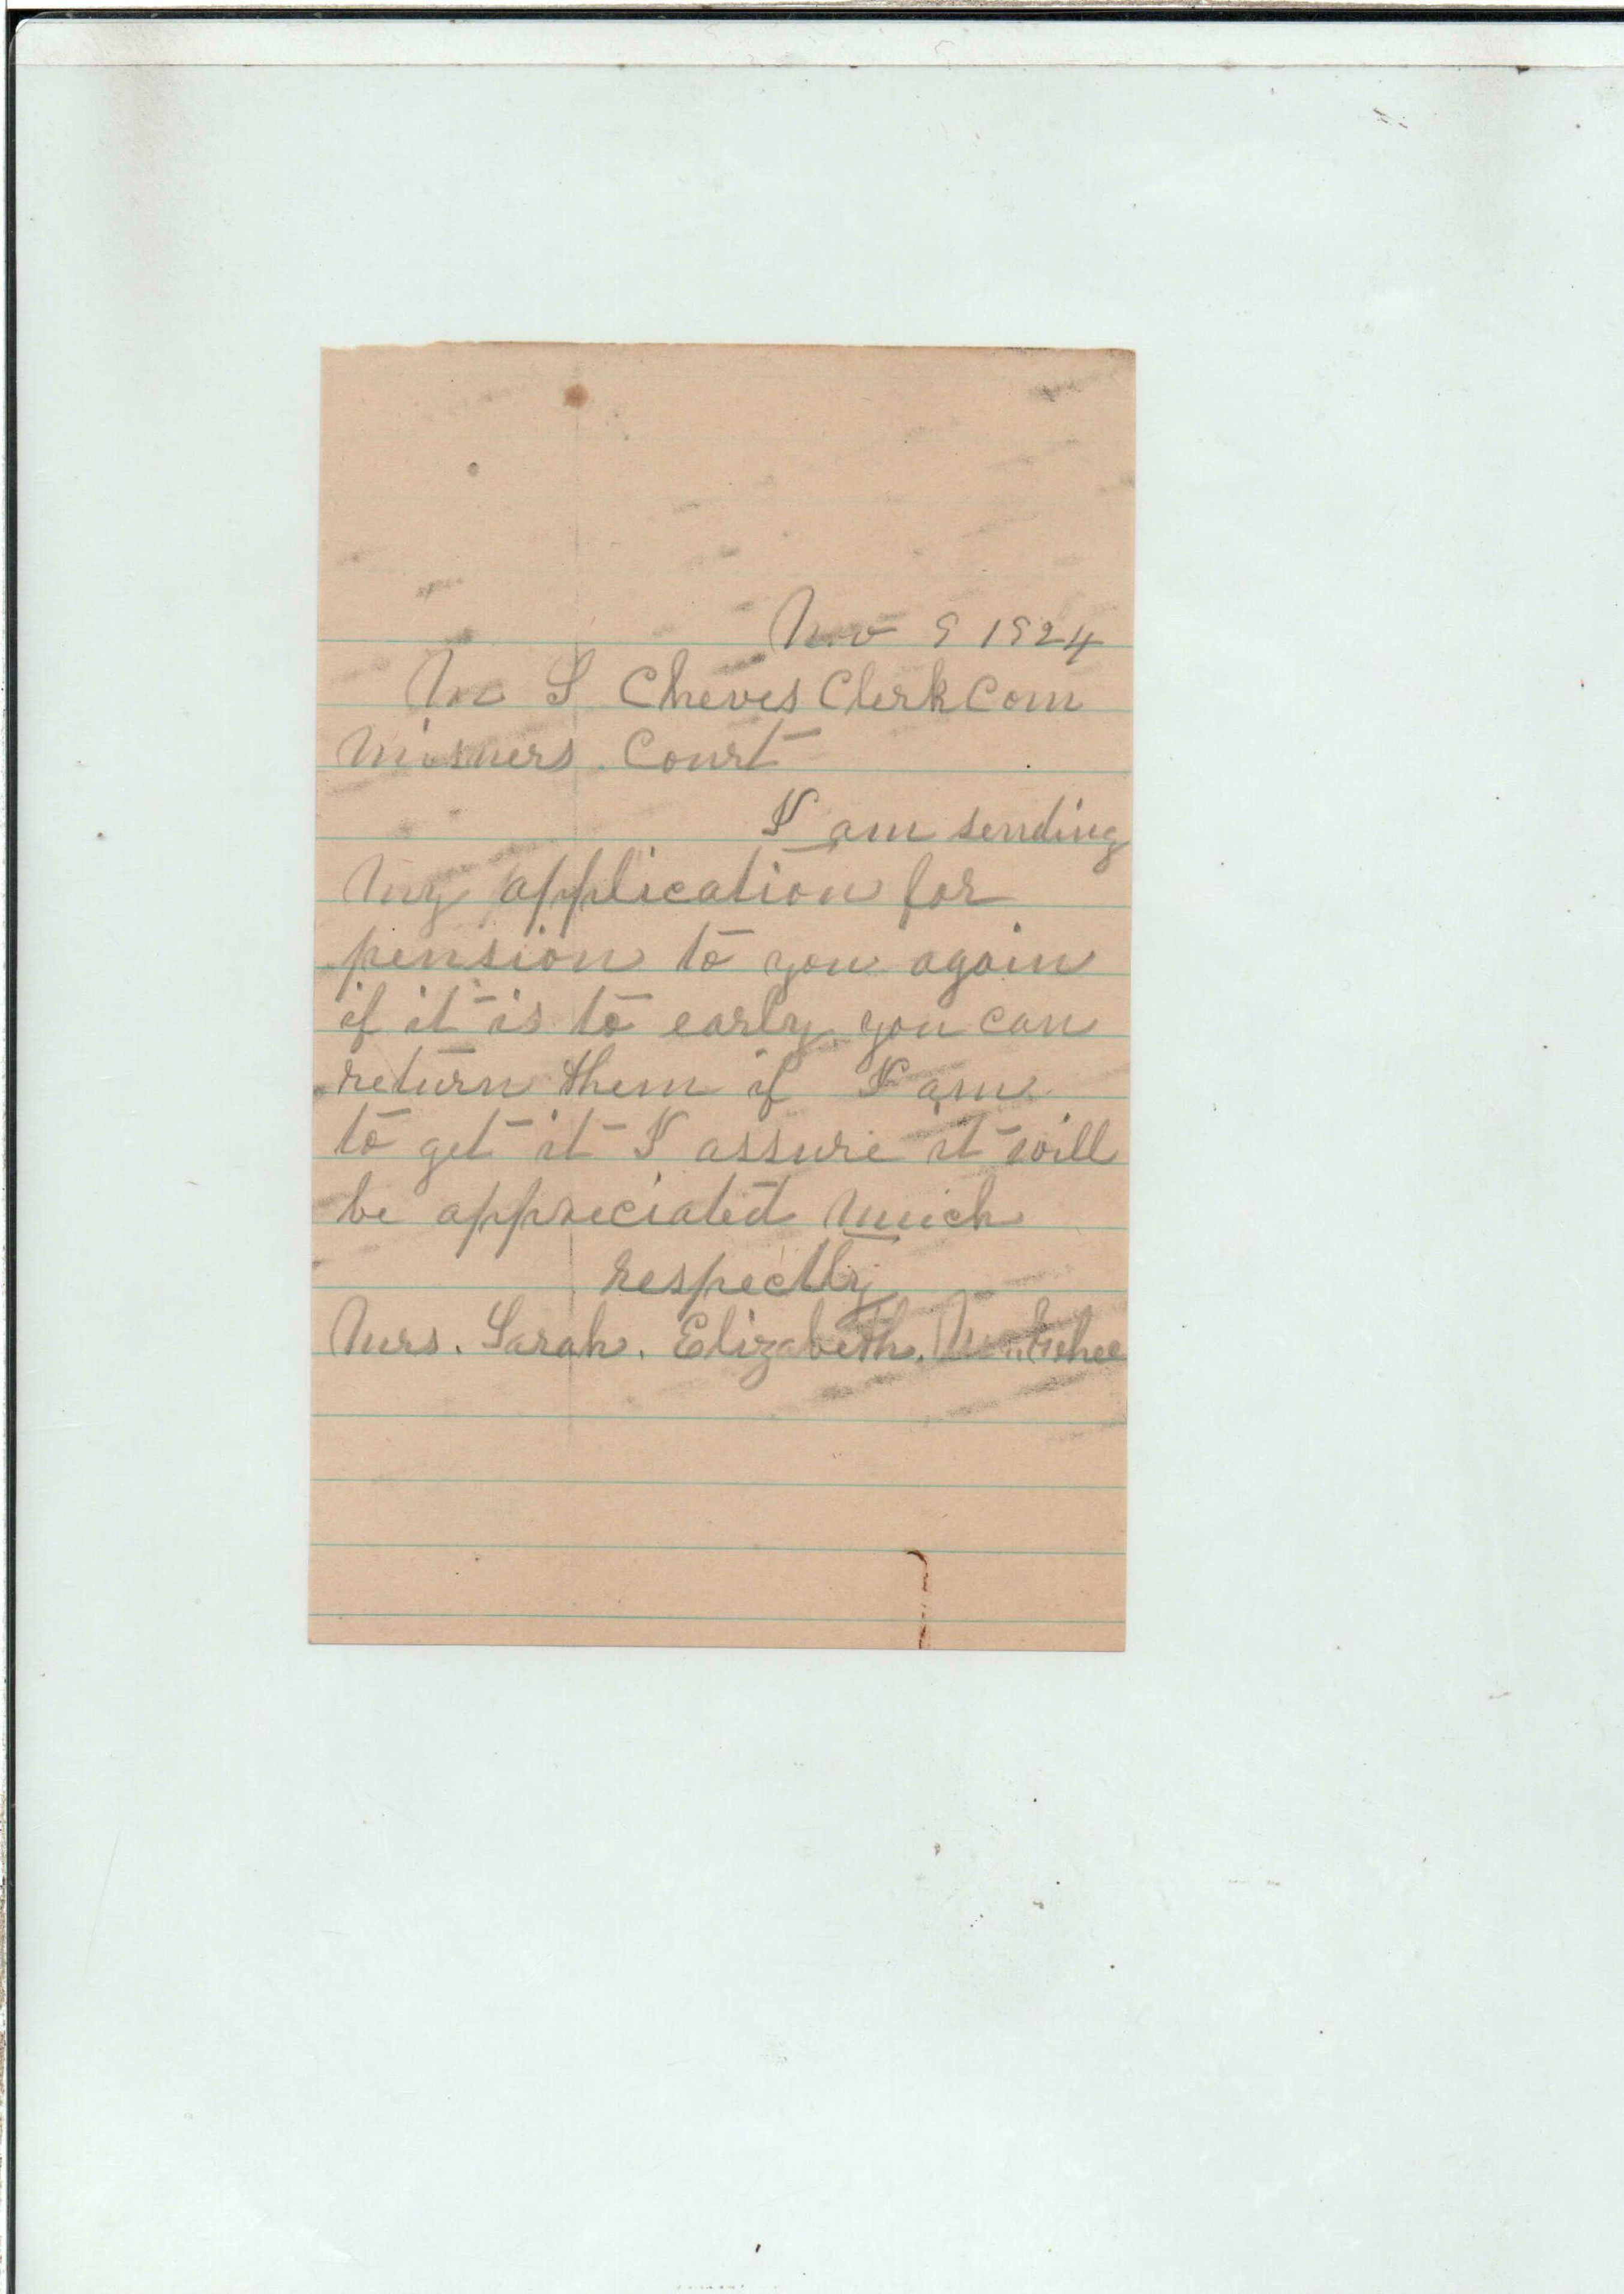 Nov 9 1924
S Cheves Clerk Com
misners Court
I am sending
my application for
pension to you again
if it is to early you can
return them if I am
to get it I assure it will
be appreciated much
respectly
Mrs. Sarah. Elizabeth.